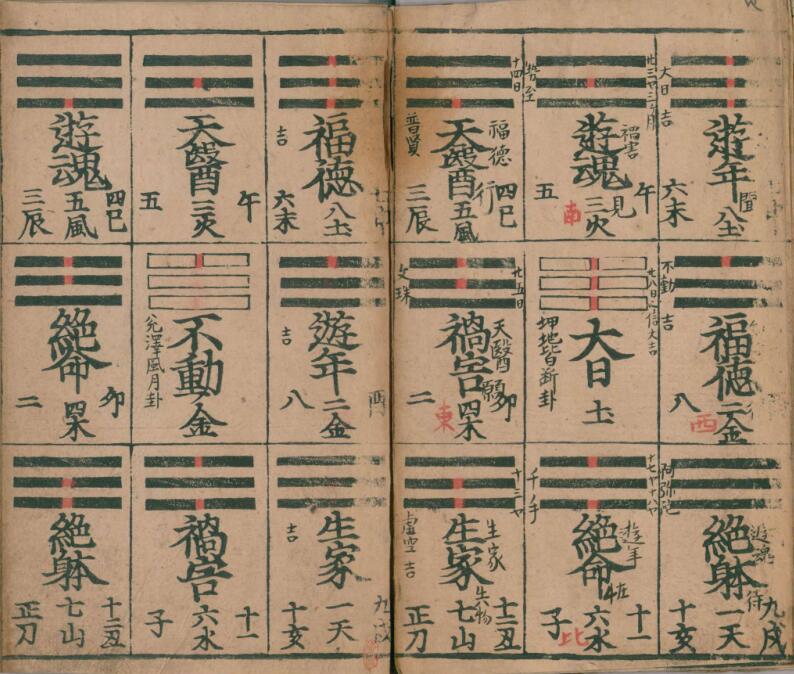 遊年
八土
六未
大日
吉
遊魂
三火
午
五
見
南
禍害
天醫
五風
四巳
三辰
福德
行
普賢
十四日
福德
二金
八
西
不動
吉
大日
土
坤地皆断卦
禍害
四木
卯
二
東
天醫
文珠
廿五日
絶躰
一天
九戌
十亥
遊魂
絶命
六水
十一
子
遊年
千手
生家
七山
十二丑
正刀
生家
虚空
吉
十三
福德
八土
六未
吉
天醫
三火
午
五
遊魂
五風
四巳
三辰
遊年
二金
八
吉
不動
金
兊澤風月卦
絶命
四木
卯
二
生家
一天
十亥
吉
禍害
六水
十一
子
絶躰
七山
十二丑
正刀